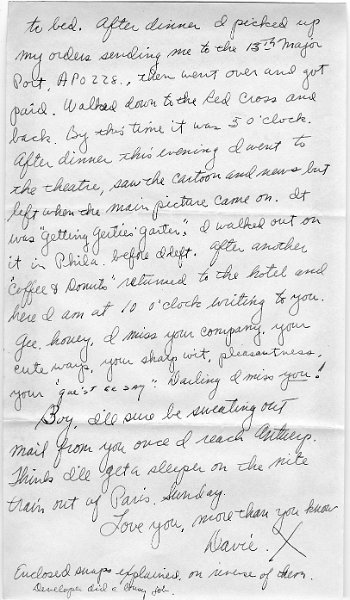 to bed. After dinner I picked up
my orders sending me to the 13th Major
Port, APO 228., then went over and got
paid. Walked down to the Red Cross and
back. By this time it was 5 o'clock.
After dinner this evening I went to
the theatre, saw the cartoon and news but
left when the main picture came on. It
was "Getting Gerties garter", I walked out on
it in Phila. before I left. After another
"Coffee & Donuts" returned to the hotel and
here I am at 10 o'clock writing to you.
Gee, honey, I miss your company, your
cute ways, your sharp wit, pleasantness,
your Darling I miss you!
Boy, I'll sure be sweating out
mail from you once I reach Antwerp.
Think I'll get a sleeper on the nite
train out of Paris, Sunday.
Love you, more than you know
Davie. X
Enclosed snaps explained on reverse of them.
Developer did a lousy job.